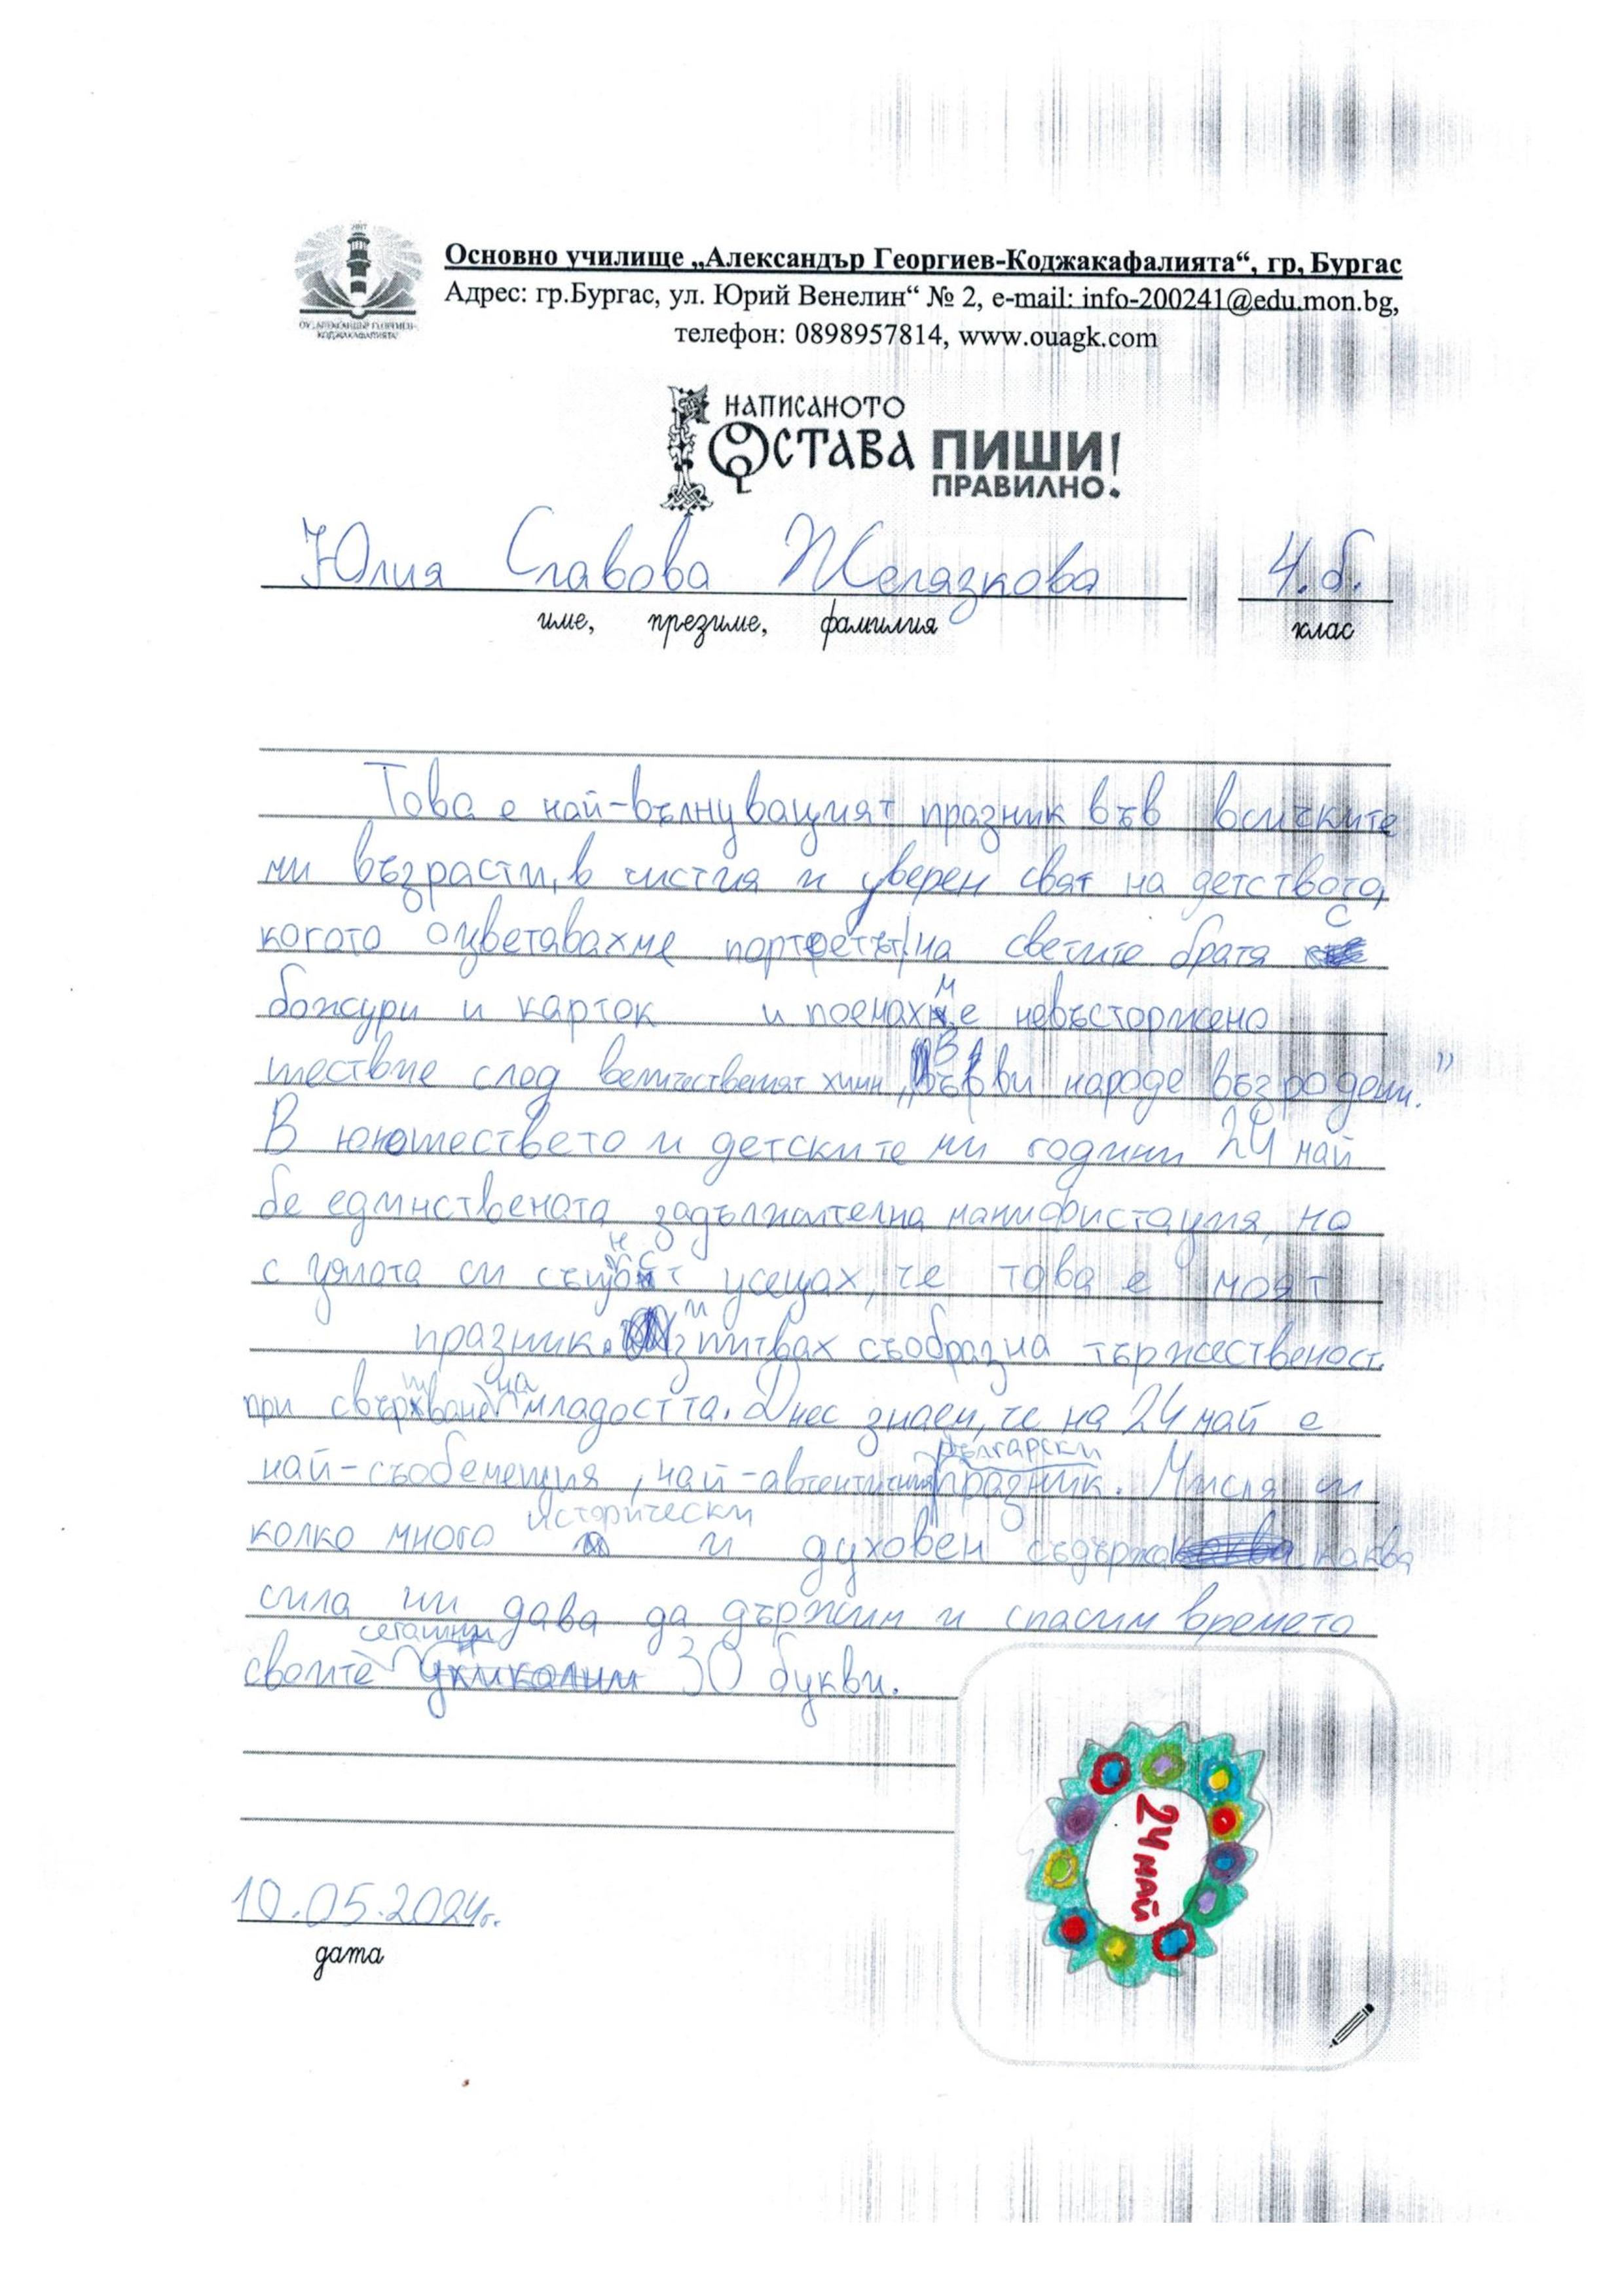 Основно училище „Александър Георгиев-Коджакафалията“, гр. Бургас
Адрес: гр.Бургас, ул. Юрий Венелин“ № 2, e-mail: info-200241@edu.mon.bg,
телефон: 0898957814, www.ouagk.com
2007
ОУ „АЛЕКСАНДЪР ГЕОРГИЕВ-
КОДЖАКАФАЛИЯТА“
НАПИСАНОТО
ОСТАВА ПИШИ
ПРАВИЛНО!
Юлия Славова Желязкова 4.б.
име, презиме, фамилия клас
Това е най-вълнуващият празник във всичките
ми възрасти, в чистия и уверен свят на детството,
когато оцветавахме портретът на светите братя с
божури и карток и поемахме невъсторжено
шествие след величественият химн „Върви народе възродени.”
В юношествето и детските ми години 24 май
бе единствената задължителна манифистация, но
с цялота си същност усещах, че това е моят
празник. Изпитвах съобразна тържественост
при свършване на младостта. Днес знаем, че на 24 май е
най-съобемещия, най-автентичния български празник. Мисля си
колко много исторически и духовен каква
сила ни дава да държим и спасим времето
своите сегашни 30 букви.
24 МАЙ
10.05.2024г.
дата